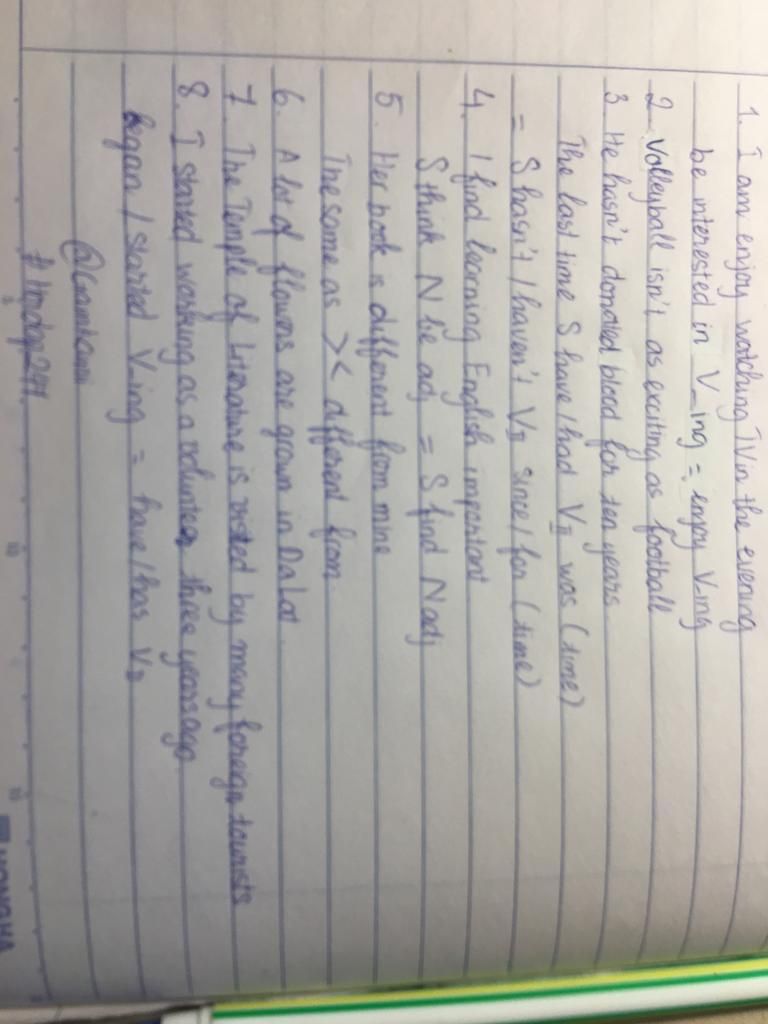 1. I am enjoy watching TV in the evening
be interested in V_ing = enjoy V-ing
2 Volleyball isn't as exciting as football
3. He hasn't donated blood for ten years.
The last time S have / had VII was (time)
= S hasn't / haven't VII since / for (time)
4. I find learning English important
S think N be adj = S find N adj
5. Her book is different from mine
The same as >< different from
6. A lot of flowers are grown in Da Lat.
7. The Temple of Literature is visted by many foreign tourists
8. I started working as a volunteer three years ago
began / started V-ing = have / has VII
HONGHA